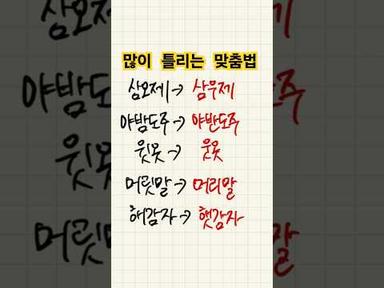 많이 틀리는 맞춤법
삼오제 → 삼우제
야밤도주 → 야반도주
윗옷 → 웃옷
머릿말 → 머리말
해감자 → 햇감자